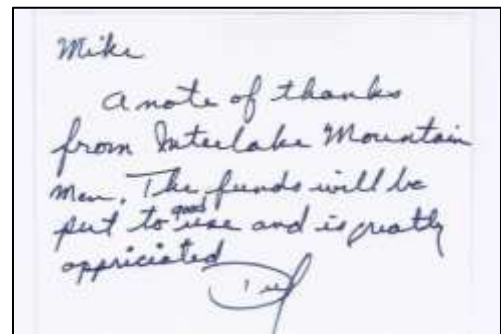 Mike
a note of thanks
from Interlake Mountain
Men. The funds will be
put to good use and is greatly
appriciated